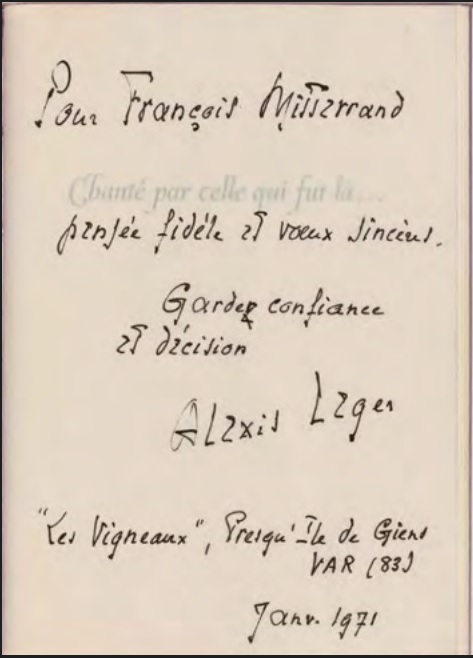 Pour François Mitterrand
Chanté par celle qui fut là...
pensée fidèle et vœux sincères.
Gardez confiance
et décision
Alexis Leger
"Les Vigneaux", Presqu'île de Giens
VAR (83)
Janv. 1971